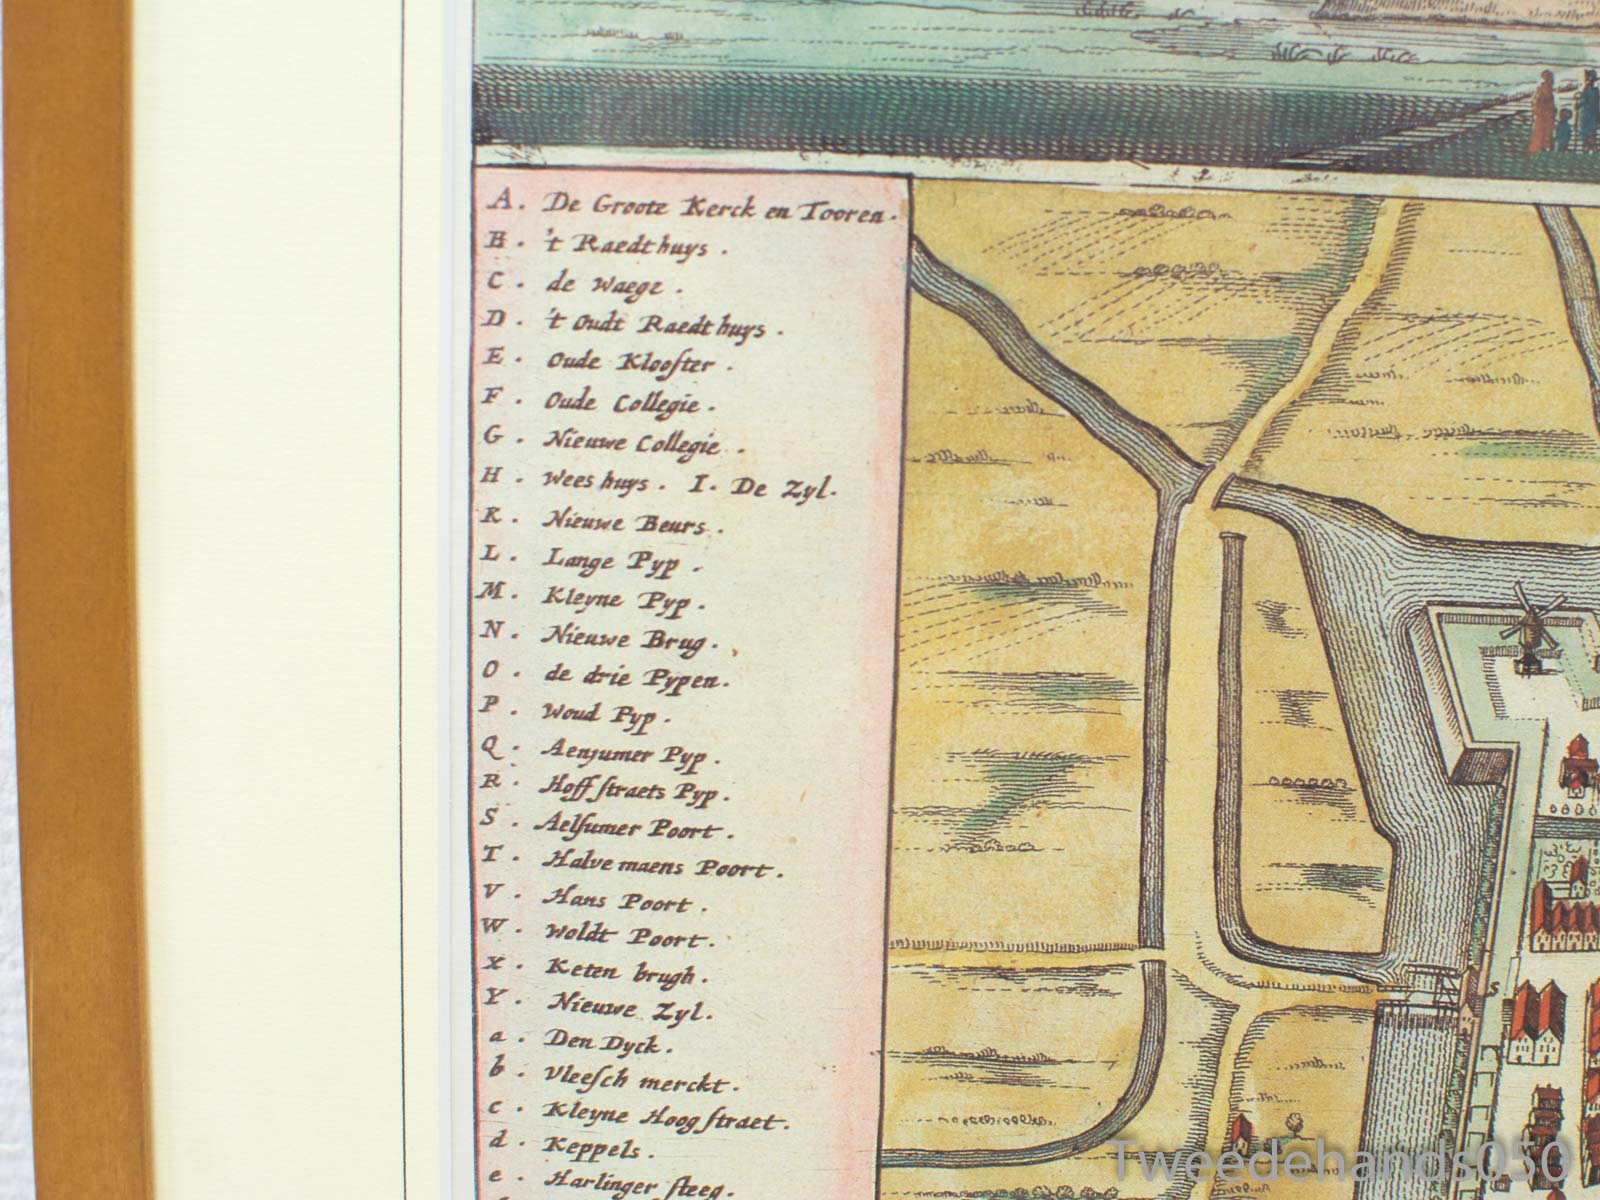 A. De Groote Kerck en Tooren.
B. 't Raedt huys.
C. de Waege.
D. 't Oudt Raedt huys.
E. Oude Klooſter.
F. Oude Collegie.
G. Nieuwe Collegie.
H. Wees huys. I. De Zyl.
K. Nieuwe Beurs.
L. Lange Pyp.
M. Kleyne Pyp.
N. Nieuwe Brug.
O. de drie Pypen.
P. Woud Pyp.
Q. Aenjumer Pyp.
R. Hoff ſtraets Pyp.
S. Aelſumer Poort.
T. Halve maens Poort.
V. Hans Poort.
W. Woldt Poort.
X. Keten brugh.
Y. Nieuwe Zyl.
a. Den Dyck.
b. Vleeſch merckt.
c. Kleyne Hoog ſtraet.
d. Keppels.
e. Harlinger ſteeg.
S
Tweedehands050